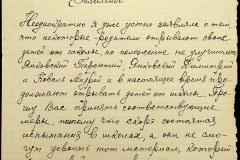 Заявление
Неоднократно я уже устно заявляла о том,
что некоторые родители отрывают своих
детей от школы, но положение не улучшилось.
Янковский Терентий, Янковский Димитрий
и Коваль Андрей и в настоящее время про-
должают отрывать детей от школы. Про-
шу Вас принять соответствующие
меры, потому что скоро состоятся
испытания в школах, а они не смо-
гут усвоить тот материал, который